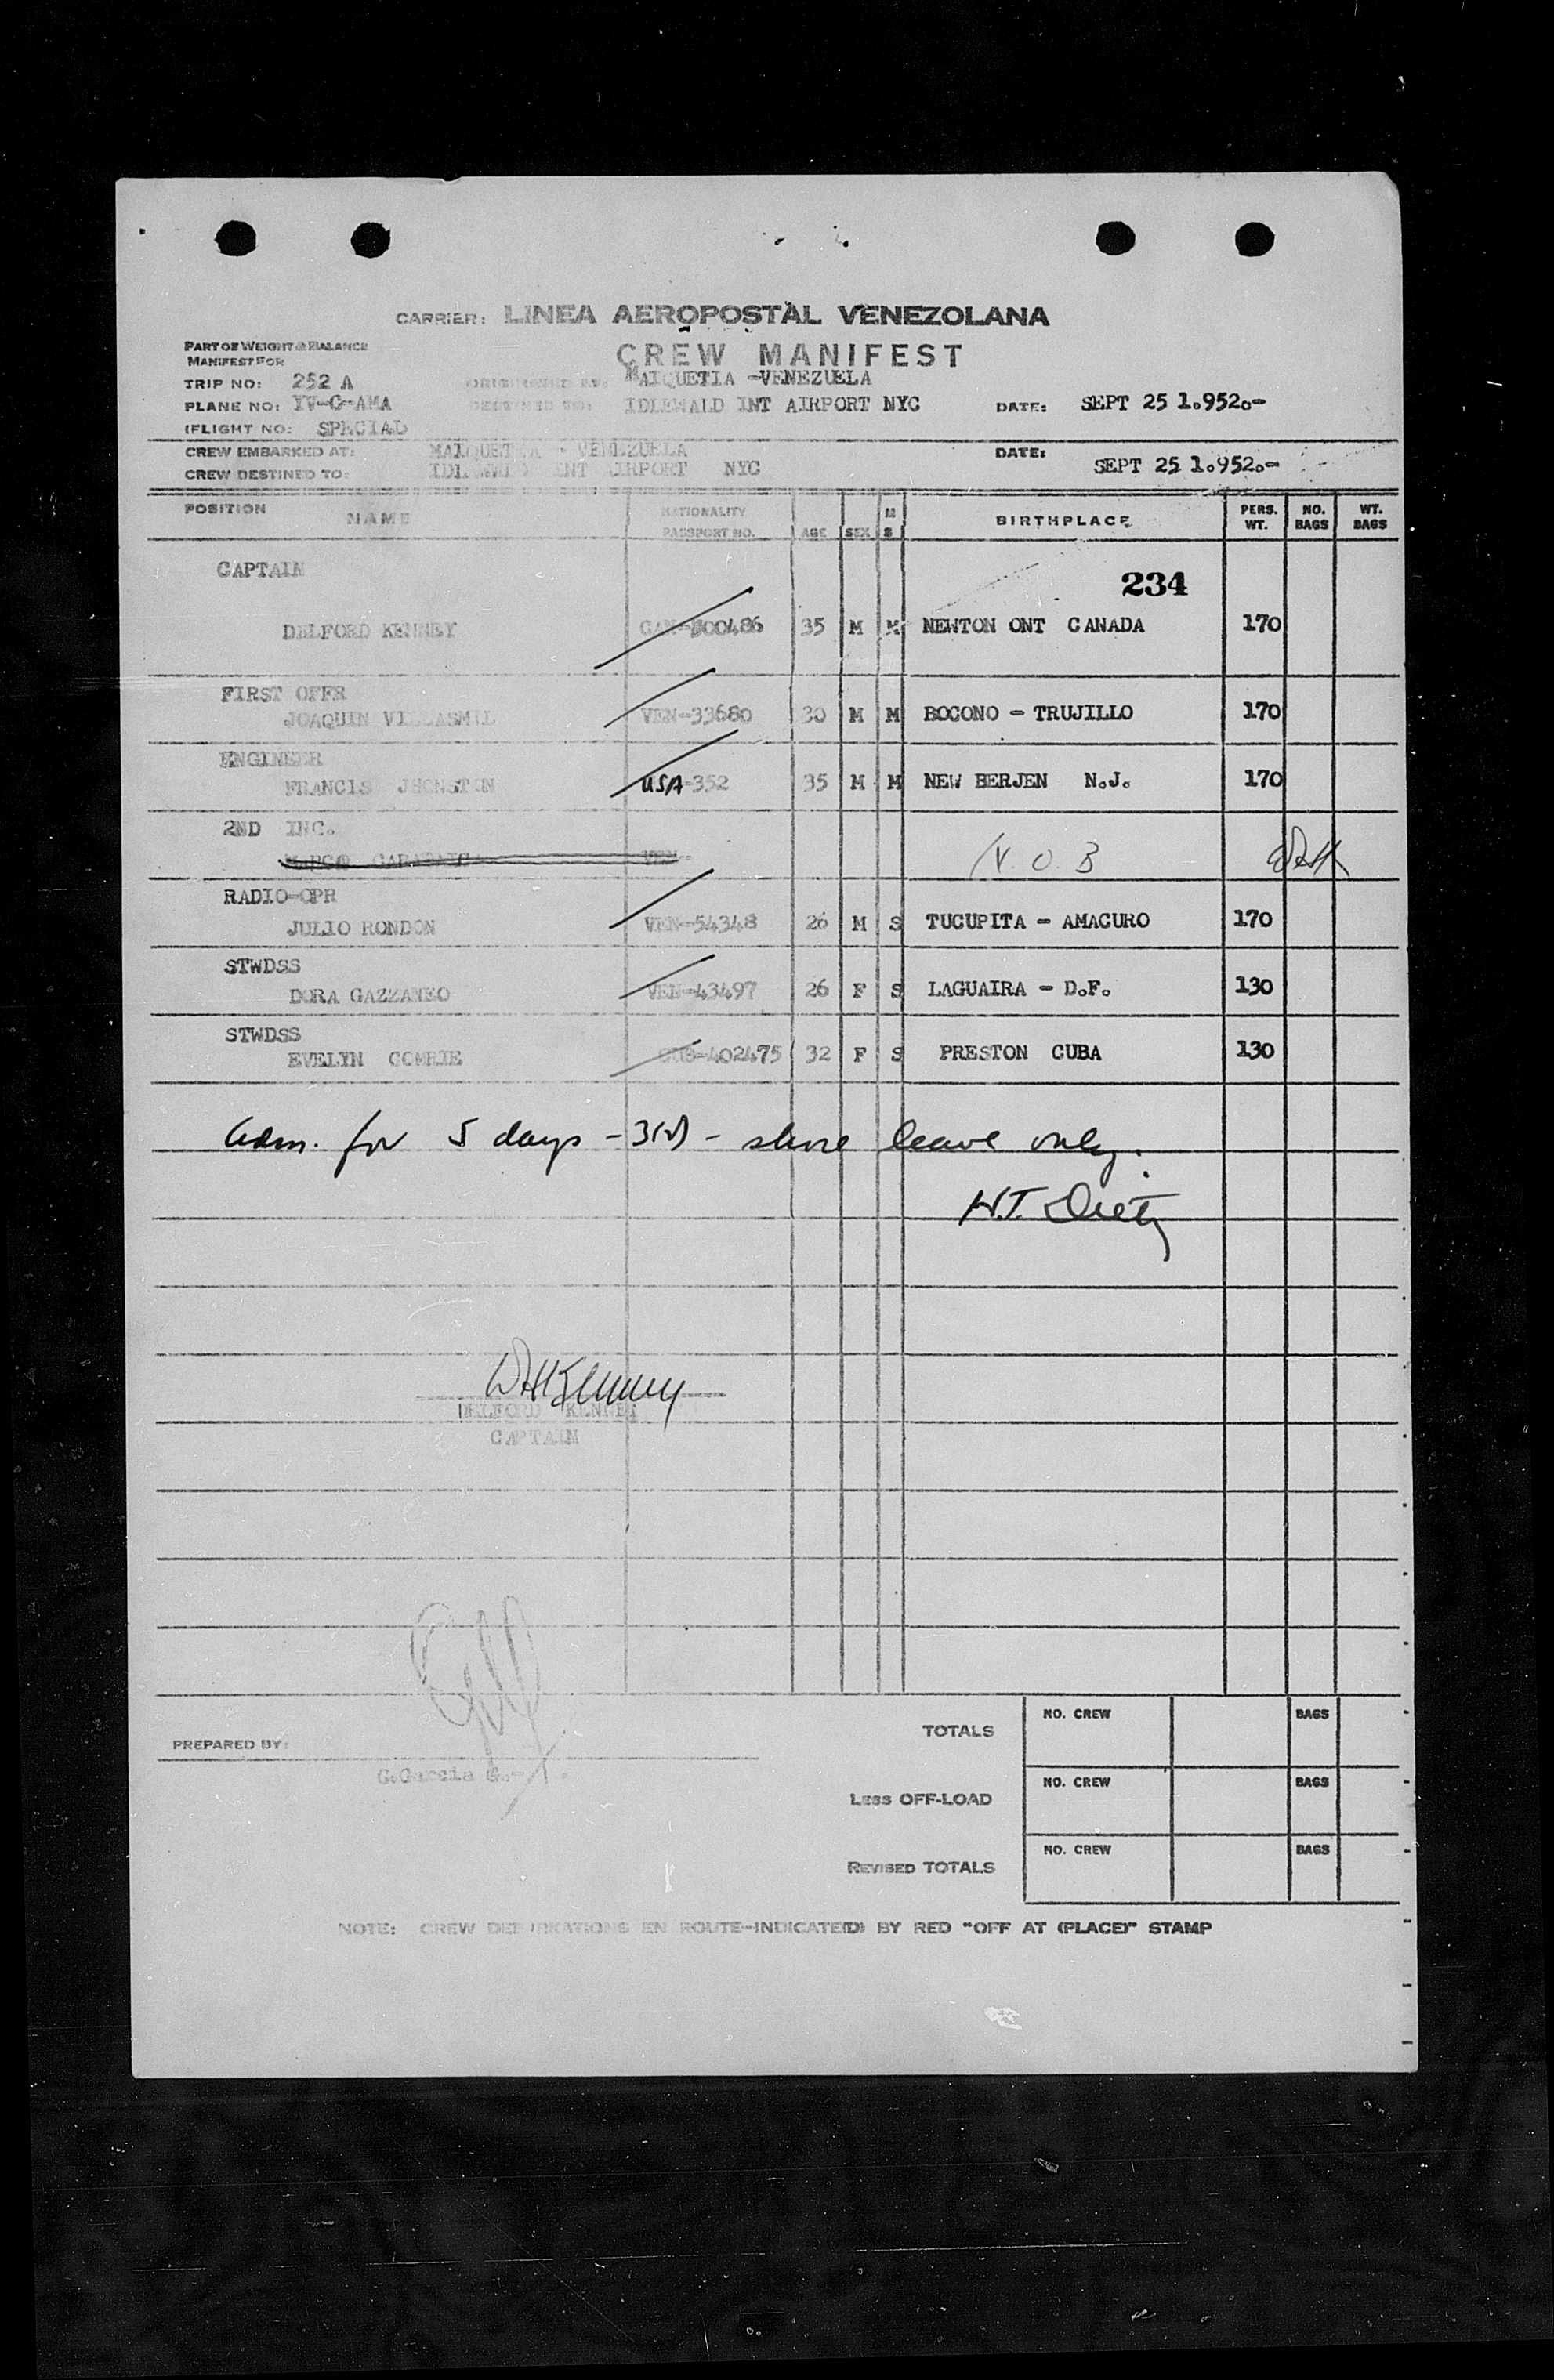 CARRIER: LINEA AEROPOSTAL VENEZOLANA
PART OF WEIGHT & BALANCE
MANIFEST FOR
CREW MANIFEST
TRIP NO: 252 A ORIGINATED AT: MAIQUETIA -VENEZUELA
PLANE NO: YV-C-AMA DESTINED TO: IDLEWALD INT AIRPORT NYC DATE: SEPT 25 1.952.-
(FLIGHT NO: SPECIAL
CREW EMBARKED AT: MAIQUETIA - VENEZUELA DATE:
CREW DESTINED TO: IDLEWILD INT AIRPORT NYC SEPT 25 1.952.-
POSITION NAME NATIONALITY PASSPORT NO. AGE SEX M S BIRTHPLACE PERS. WT. NO. BAGS WT. BAGS
CAPTAIN
234
DELFORD KENNEY CAN-200486 35 M M NEWTON ONT CANADA 170
FIRST OFFR
JOAQUIN VILLASMIL VEN-33680 30 M M BOCONO - TRUJILLO 170
ENGINEER
FRANCIS JHONSTON USA-352 35 M M NEW BERJEN N.J. 170
2ND INC.
VEN- N.O.B
RADIO-OPR
JULIO RONDON VEN-54348 26 M S TUCUPITA - AMACURO 170
STWDSS
DORA GAZZANEO VEN-43497 26 F S LAGUAIRA - D.F. 130
STWDSS
EVELYN GOMRIE CUB-402475 32 F S PRESTON CUBA 130
Adm. for 5 days - 3(5) - shore leave only.
W.T. Dietz
DHKenney
DELFORD KENNEY
CAPTAIN
PREPARED BY:
G.Garcia G.-
TOTALS NO. CREW BAGS
LESS OFF-LOAD NO. CREW BAGS
REVISED TOTALS NO. CREW BAGS
NOTE: CREW DEPURATIONS EN ROUTE-INDICATE(D) BY RED "OFF AT (PLACE)" STAMP